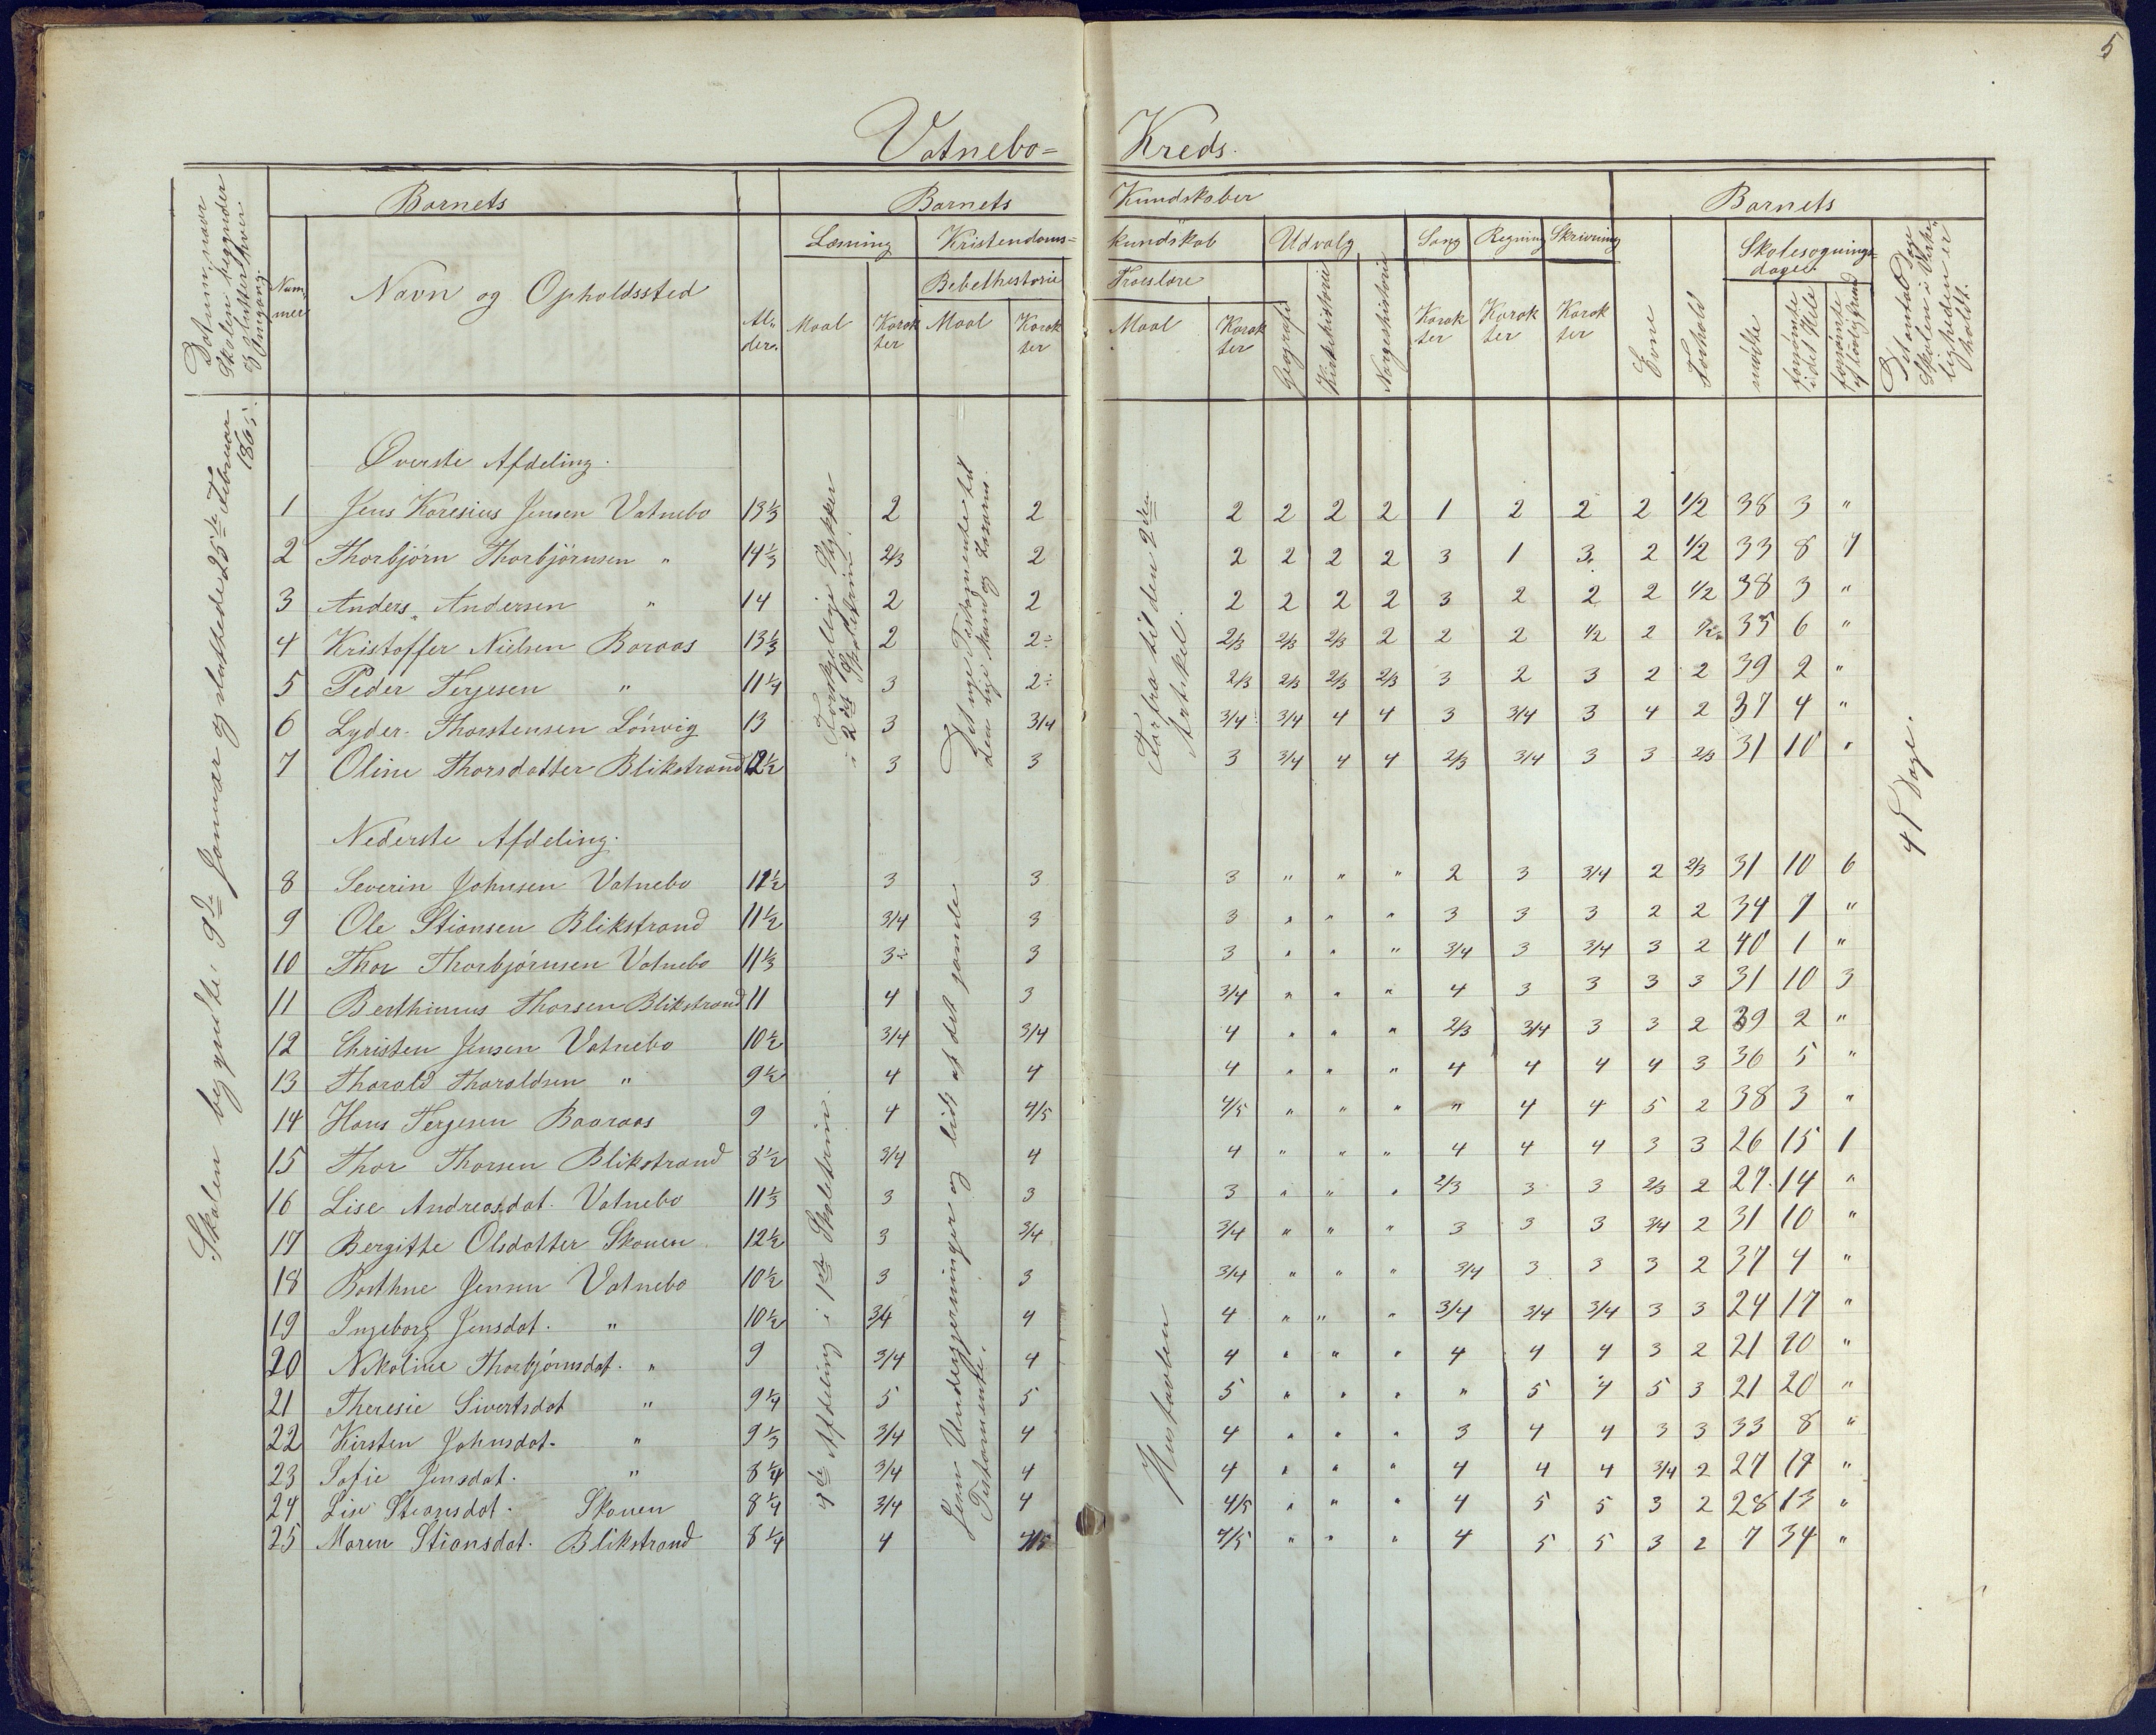 5
Vatnebo= Kreds.
Datum, naar Skolen begynder og slutter hver Omgang.
Barnets
Barnets Kundskaber
Barnets
Num,, mer
Navn og Opholdssted
Al,, der.
Læsning
Kristendoms= kundskab
Udvalg
Sang
Regning
Skrivning
Evne
Forhold
Skolesøgnings= dage.
Det Antal Dage Skolen i Virke,, ligheden er holdt.
Bibelhistorie
Troeslære
Maal
Karak ter
Maal
Karak ter
Maal
Karak ter
Geografi
Kirkehistorie
Norgeshistorie
Karak ter
Karak ter
Karak ter
mødte
forsømte i det Hele
forsømte af lovlig Grund
Skolen begyndte 9de Januar og sluttede 25de Februar 1865.
Øverste Afdeling.
Forskjellige Stykker i 2det Skoletrin.
Det nye Testamente til den rige Mand og Lazarus.
Forfra til den 2den Artikel.
41 Dage.
1 Jens Karesius Jensen Vatnebo 13 1/3 2 2 2 2 2 2 1 2 2 2 1/2 38 3 "
2 Thorbjørn Thorbjørnsen " 14 1/3 2/3 2 2 2 2 2 3 1 3. 2 1/2 33 8 7
3 Anders Andersen " 14 2 2 2 2 2 2 3 2 2 2 1/2 38 3 "
4 Kristoffer Nielsen Baraas 13 1/3 2 2÷ 2/3 2/3 2/3 2 2 2 1/2 2 1/2 35 6 "
5 Peder Terjesen " 11 1/4 3 2÷ 2/3 2/3 2/3 2/3 3 2 3 2 2 39 2 "
6 Lyder Thorstensen Lönvig 13 3 3/4 3/4 3/4 4 4 3 3/4 3 4 2 37 4 "
7 Oline Thorsdatter Blikstrand 12 1/2 3 3 3 3/4 4 4 2/3 3/4 3 3 2/3 31 10 "
Nederste Afdeling.
4de Afdeling i 1ste Skoletrin.
Jesu Undergjerninger og lidt af det gamle Testamente.
Hustavlen
8 Severin Johnsen Vatnebo 11 1/2 3 3 3 " " " 2 3 3/4 2 2/3 31 10 6
9 Ole Stiansen Blikstrand 11 1/2 3/4 3 3 " " " 3 3 3 2 2 34 7 "
10 Thor Thorbjörnsen Vatnebo 11 1/3 3÷ 3 3 " " " 3/4 3 3/4 3 2 40 1 "
11 Berthinius Thorsen Blikstrand 11 4 3 3/4 " " " 4 3 3 3 3 31 10 3
12 Christen Jensen Vatnebo 10 1/2 3/4 3/4 4 " " " 2/3 3/4 3 3 2 39 2 "
13 Tharald Tharaldsen " 9 1/2 4 4 4 " " " 4 4 4 4 3 36 5 "
14 Hans Terjesen Baaraas 9 4 4/5 4/5 " " " " 4 4 5 2 38 3 "
15 Thor Thorsen Blikstrand 8 1/2 3/4 4 4 " " " 4 4 4 3 3 26 15 1
16 Lise Andreasdat. Vatnebo 11 1/3 3 3 3 " " " 2/3 3 3 2/3 2 27 14 "
17 Bergitte Olsdatter Skouen 12 1/2 3 3/4 3/4 " " " 3 3 3 3/4 2 31 10 "
18 Barthne Jensen Vatnebo 10 1/2 3 3 3/4 " " " 3/4 3 3 3 2 37 4 "
19 Ingeborg Jensdat. " 10 1/2 3/4 4 4 " " " 3/4 3/4 3/4 3 3 24 17 "
20 Nikoline Thorbjörnsdat. " 9 3/4 4 4 " " " 4 4 4 3 2 21 20 "
21 Theresie Sivertsdat " 9 1/4 5 5 5 " " " " 5 4 5 3 21 20 "
22 Kirsten Johnsdat. " 9 1/3 3/4 4 4 " " " 3 4 4 3 3 33 8 "
23 Sofie Jensdat. " 8 1/4 3/4 4 4 " " " 4 4 4 3/4 2 27 14 "
24 Lise Stiansdat. Skouen 8 1/4 3/4 4 4/5 " " " 4 5 5 3 2 28 13 "
25 Maren Stiansdat. Blikstrand 8 1/4 4 4/5 4/5 " " " 4 5 5 3 2 7 34 "